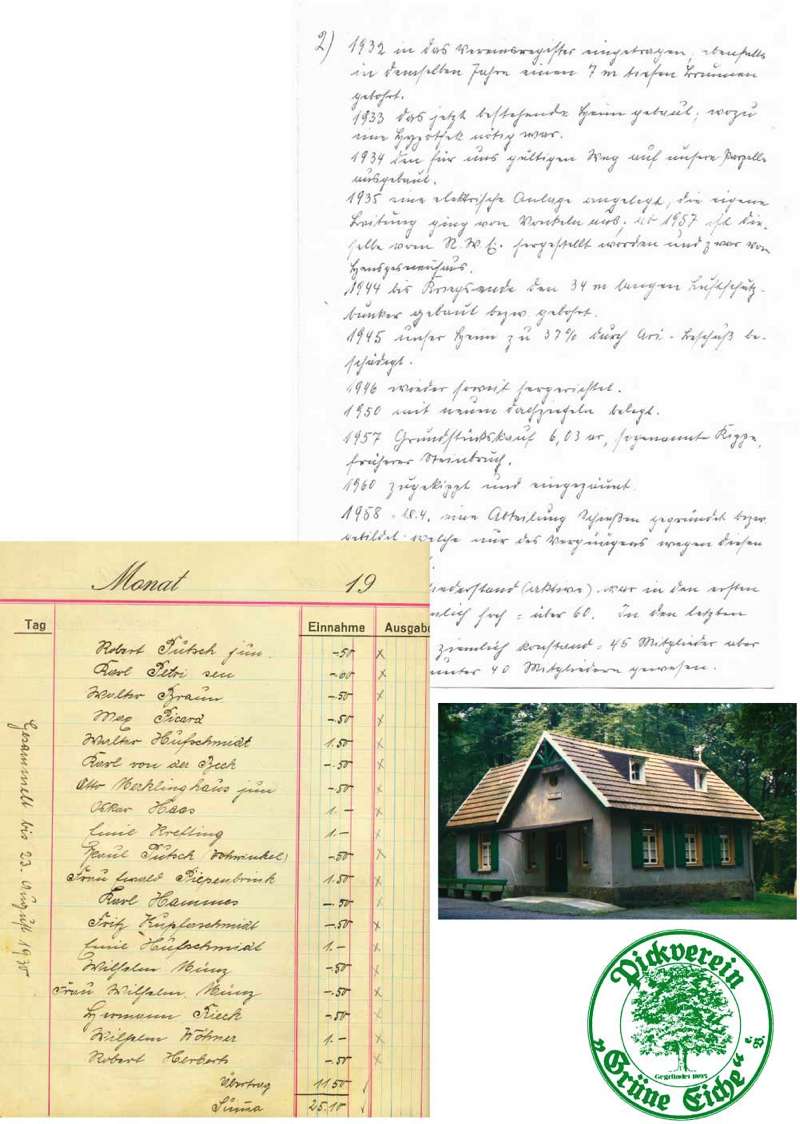 2) 1932 in das Vereinsregister eingetragen, ebenfalls
in demselben Jahre einen 7 m tiefen Brunnen
gebohrt.
1933 das jetzt bestehende Heim gebaut, wozu
eine Hypothek nötig war.
1934 den für uns gültigen Weg auf unsere Parzelle
ausgebaut.
1935 eine elektrische Anlage angelegt, die eigene
Leitung ging von Vonkeln aus, ab 1957 ist die-
selbe vom R.W.E. hergestellt worden und zwar von
1944 bis Kriegsende den 34 m langen Luftschutz-
bunker gebaut bezw. gebohrt.
1945 unser Heim zu 37% durch Ari-Beschuß be-
schädigt.
1946 wieder soweit hergerichtet.
1950 mit neuen Dachziegeln belegt.
1957 Grundstückskauf 6,03 ar, sogenannte Kippe,
früherer Steinbruch.
1960 zugekippt und eingezäunt
1958 - 18.4. eine Abteilung Schießen gegründet bezw.
gebildet welche nur des Vergnügens wegen diesen
iederstand (aktive) war in den ersten
mlich hoch = über 60. In den letzten
ziemlich konstand = 45 Mitglieder aber
unter 40 Mitgliedern gewesen.
Monat 19
Tag Einnahme Ausgabe
Gesammelt bis 23. August 1930
Robert Pütsch jun. -50 x
Karl Petri sen
Walter Braun -50 x
Max Picard -50 x
Walter Hufschmidt 1.50 x
Karl von der Beck -.50 x
Otto Merklinghaus jun -50 x
Oskar Haas 1.- x
Emil Krelling 1.- x
Paul Pütsch (Vohwinkel) -50 x
Frau Ewald Piepenbrink 1.50 x
Karl Hammes -50 x
Fritz Kupferschmidt -.50 x
Emil Hufschmidt 1.- x
Wilhelm Münz -50 x
Frau Wilhelm Münz -.50 x
Hermann Kieck -50 x
Wilhelm Wöhner 1.- x
Robert Herberts -.50 x
Übertrag 11.50
Summa 25.10
Pickverein
Gegründet 1895
„Grüne Eiche“ e. V.